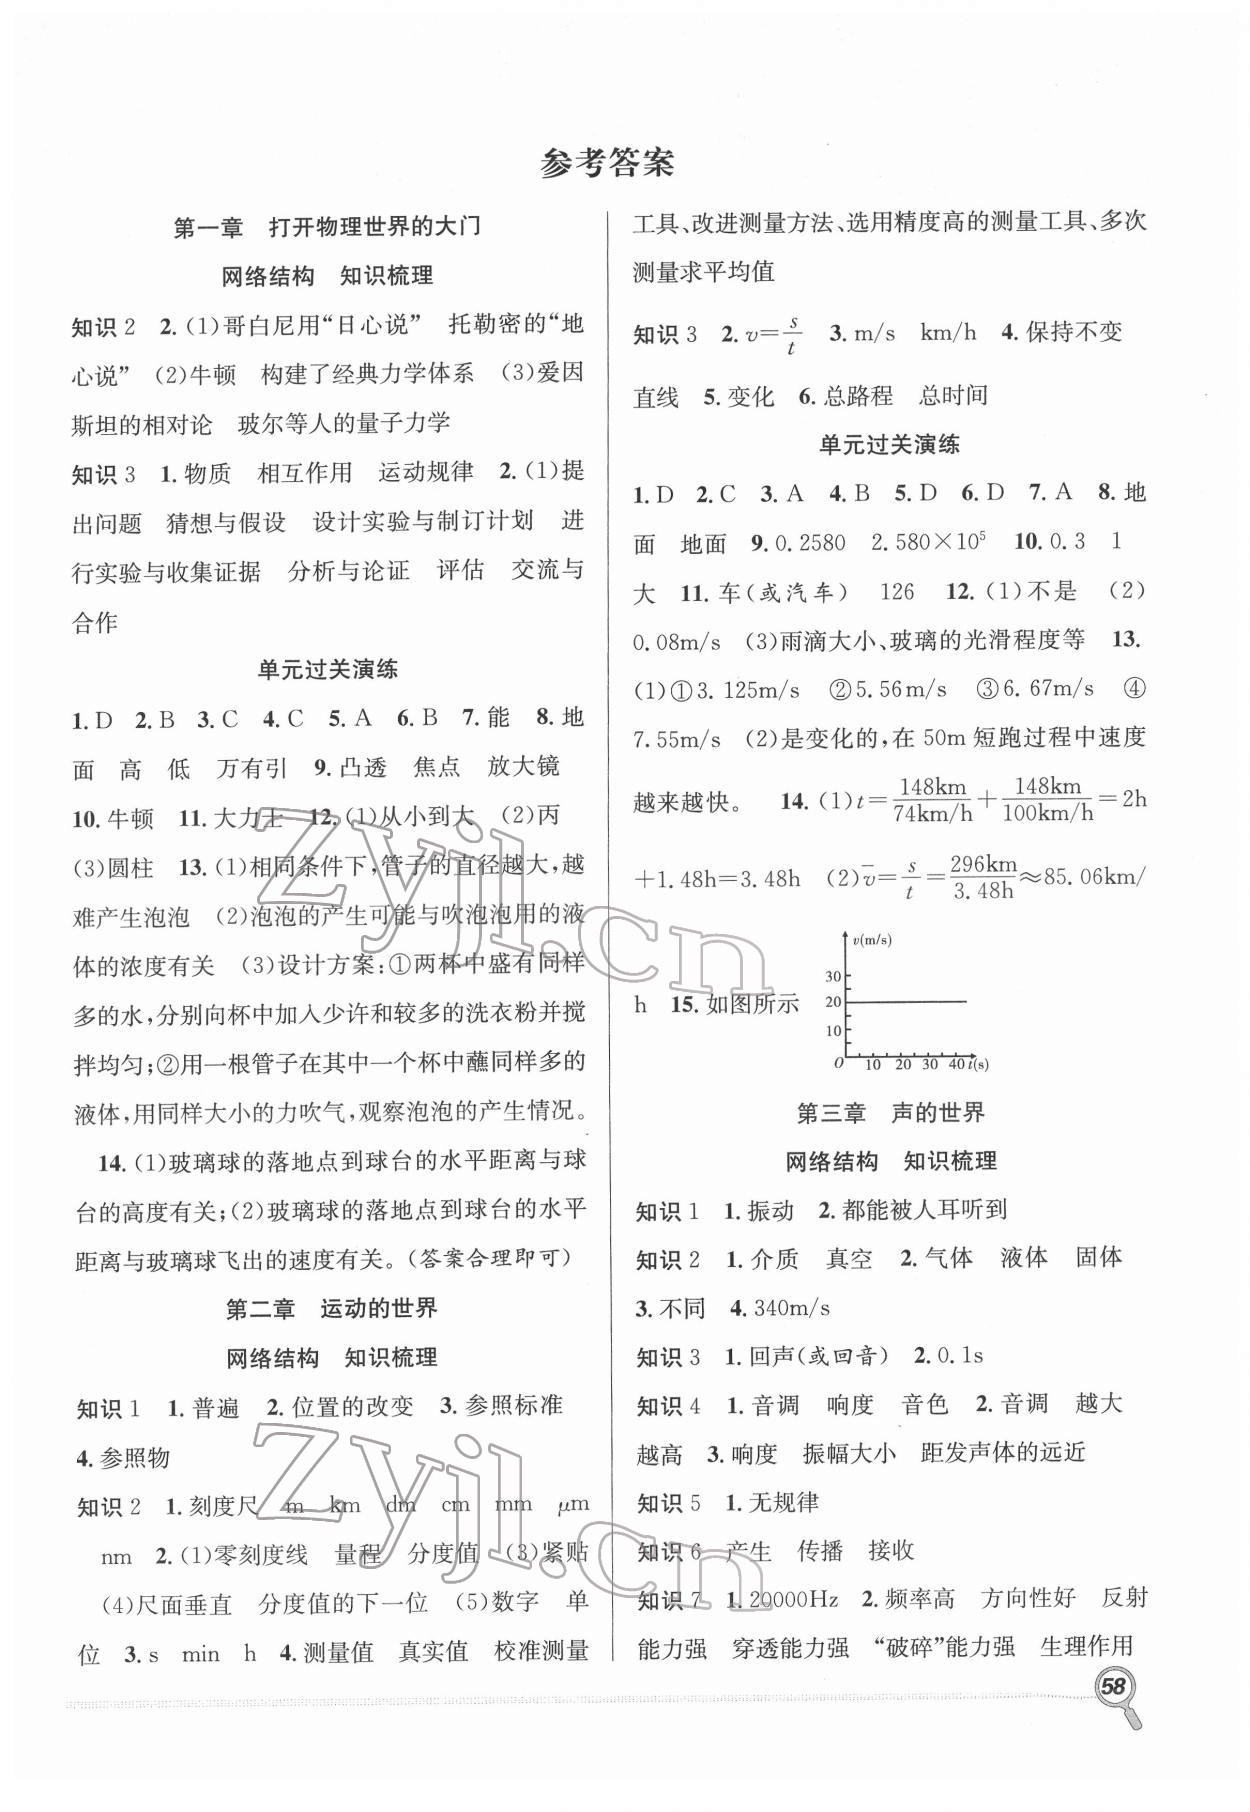 参考答案
第一章　打开物理世界的大门
网络结构　知识梳理
知识2　2.(1)哥白尼用“日心说”　托勒密的“地
心说”　(2)牛顿　构建了经典力学体系　(3)爱因
斯坦的相对论　玻尔等人的量子力学
知识3　1.物质　相互作用　运动规律　2.(1)提
出问题　猜想与假设　设计实验与制订计划　进
行实验与收集证据　分析与论证　评估　交流与
合作
单元过关演练
1.D　2.B　3.C　4.C　5.A　6.B　7.能　8.地
面　高　低　万有引　9.凸透　焦点　放大镜
10.牛顿　11.大力士　12.(1)从小到大　(2)丙
(3)圆柱　13.(1)相同条件下,管子的直径越大,越
难产生泡泡　(2)泡泡的产生可能与吹泡泡用的液
体的浓度有关　(3)设计方案:①两杯中盛有同样
多的水,分别向杯中加入少许和较多的洗衣粉并搅
拌均匀;②用一根管子在其中一个杯中蘸同样多的
液体,用同样大小的力吹气,观察泡泡的产生情况。
14.(1)玻璃球的落地点到球台的水平距离与球
台的高度有关;(2)玻璃球的落地点到球台的水平
距离与玻璃球飞出的速度有关。(答案合理即可)
第二章　运动的世界
网络结构　知识梳理
知识1　1.普遍　2.位置的改变　3.参照标准
4.参照物
知识2　1.刻度尺　m　km　dm　cm　mm　μm
nm　2.(1)零刻度线　量程　分度值　(3)紧贴
(4)尺面垂直　分度值的下一位　(5)数字　单
位　3.s　min　h　4.测量值　真实值　校准测量
工具、改进测量方法、选用精度高的测量工具、多次
测量求平均值
知识3　2.v=s/t　3.m/s　km/h　4.保持不变
直线　5.变化　6.总路程　总时间
单元过关演练
1.D　2.C　3.A　4.B　5.D　6.D　7.A　8.地
面　地面　9.0.2580　2.580×10⁵　10.0.3　1
大　11.车(或汽车)　126　12.(1)不是　(2)
0.08m/s　(3)雨滴大小、玻璃的光滑程度等　13.
(1)①3.125m/s　②5.56m/s　③6.67m/s　④
7.55m/s　(2)是变化的,在50m短跑过程中速度
越来越快。　14.(1)t=148km/74km/h+148km/100km/h=2h
+1.48h=3.48h　(2)v̄=s/t=296km/3.48h≈85.06km/
h　15.如图所示
v(m/s)
30
20
10
O　10　20　30　40 t(s)
第三章　声的世界
网络结构　知识梳理
知识1　1.振动　2.都能被人耳听到
知识2　1.介质　真空　2.气体　液体　固体
3.不同　4.340m/s
知识3　1.回声(或回音)　2.0.1s
知识4　1.音调　响度　音色　2.音调　越大
越高　3.响度　振幅大小　距发声体的远近
知识5　1.无规律
知识6　产生　传播　接收
知识7　1.20000Hz　2.频率高　方向性好　反射
能力强　穿透能力强　“破碎”能力强　生理作用
58
zyjl.cn
zyjl.cn